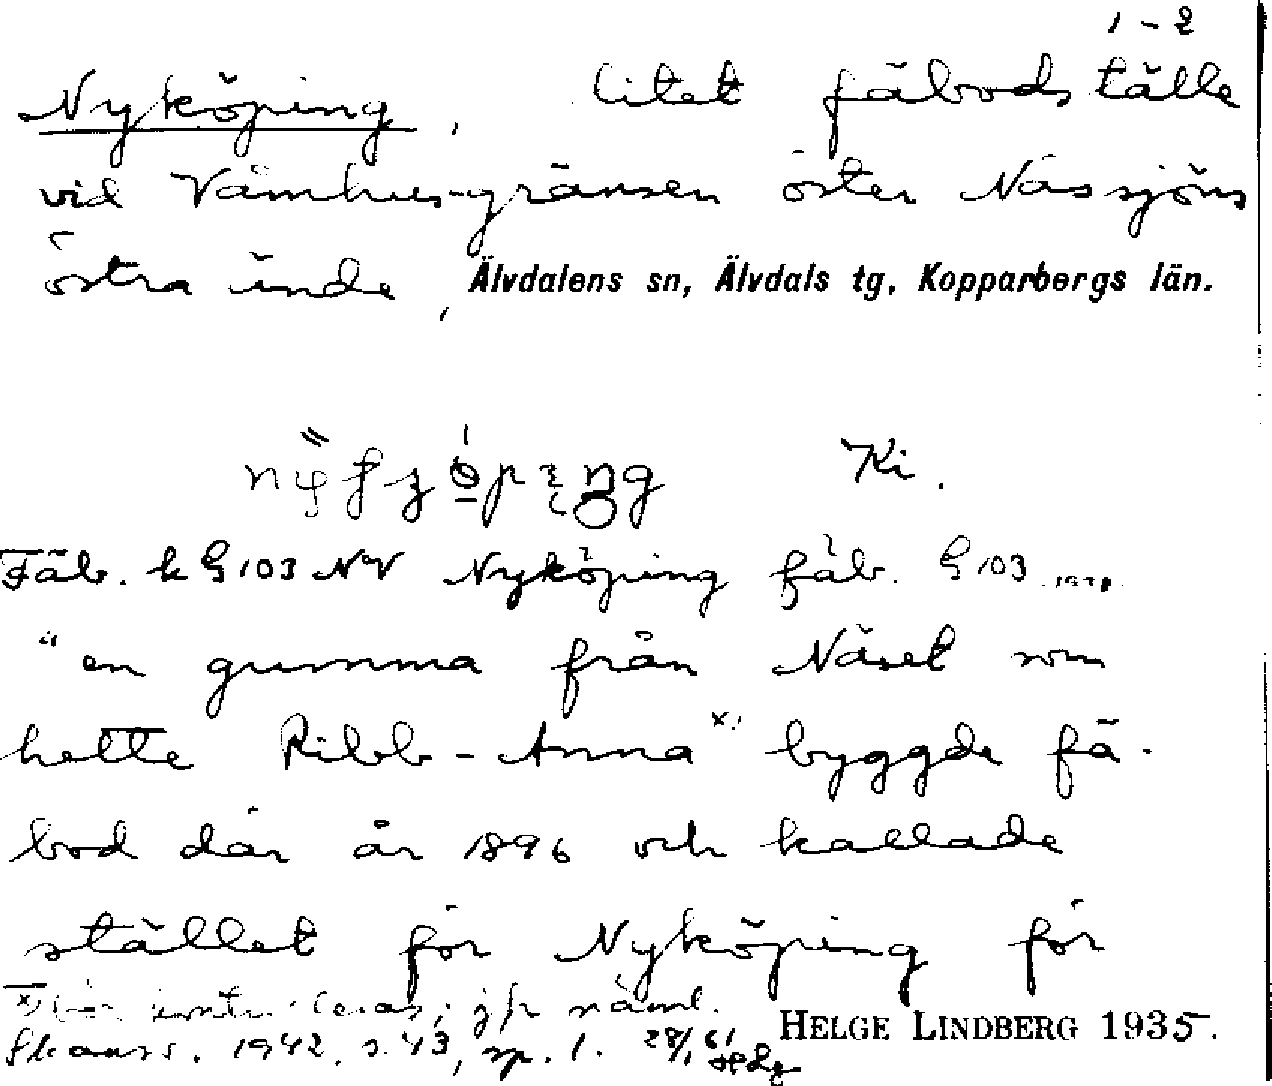 1-2
Nyköping, litet fäbodställe
vid Våmhus-gränsen öster Nässjöns
östra ände, Älvdalens sn, Älvdals tg, Kopparbergs län.
Ki.
Fäb. k § 103 NV Nyköping fäb. § 103
"en gumma från Näset som
hette Ribb-Anna" x) byggde fä-
bod där år 1896 och kallade
stället för Nyköping för
x) bör jfr näml.
1942, s. 43, sp. 1. 28/1 61
HELGE LINDBERG 1935.